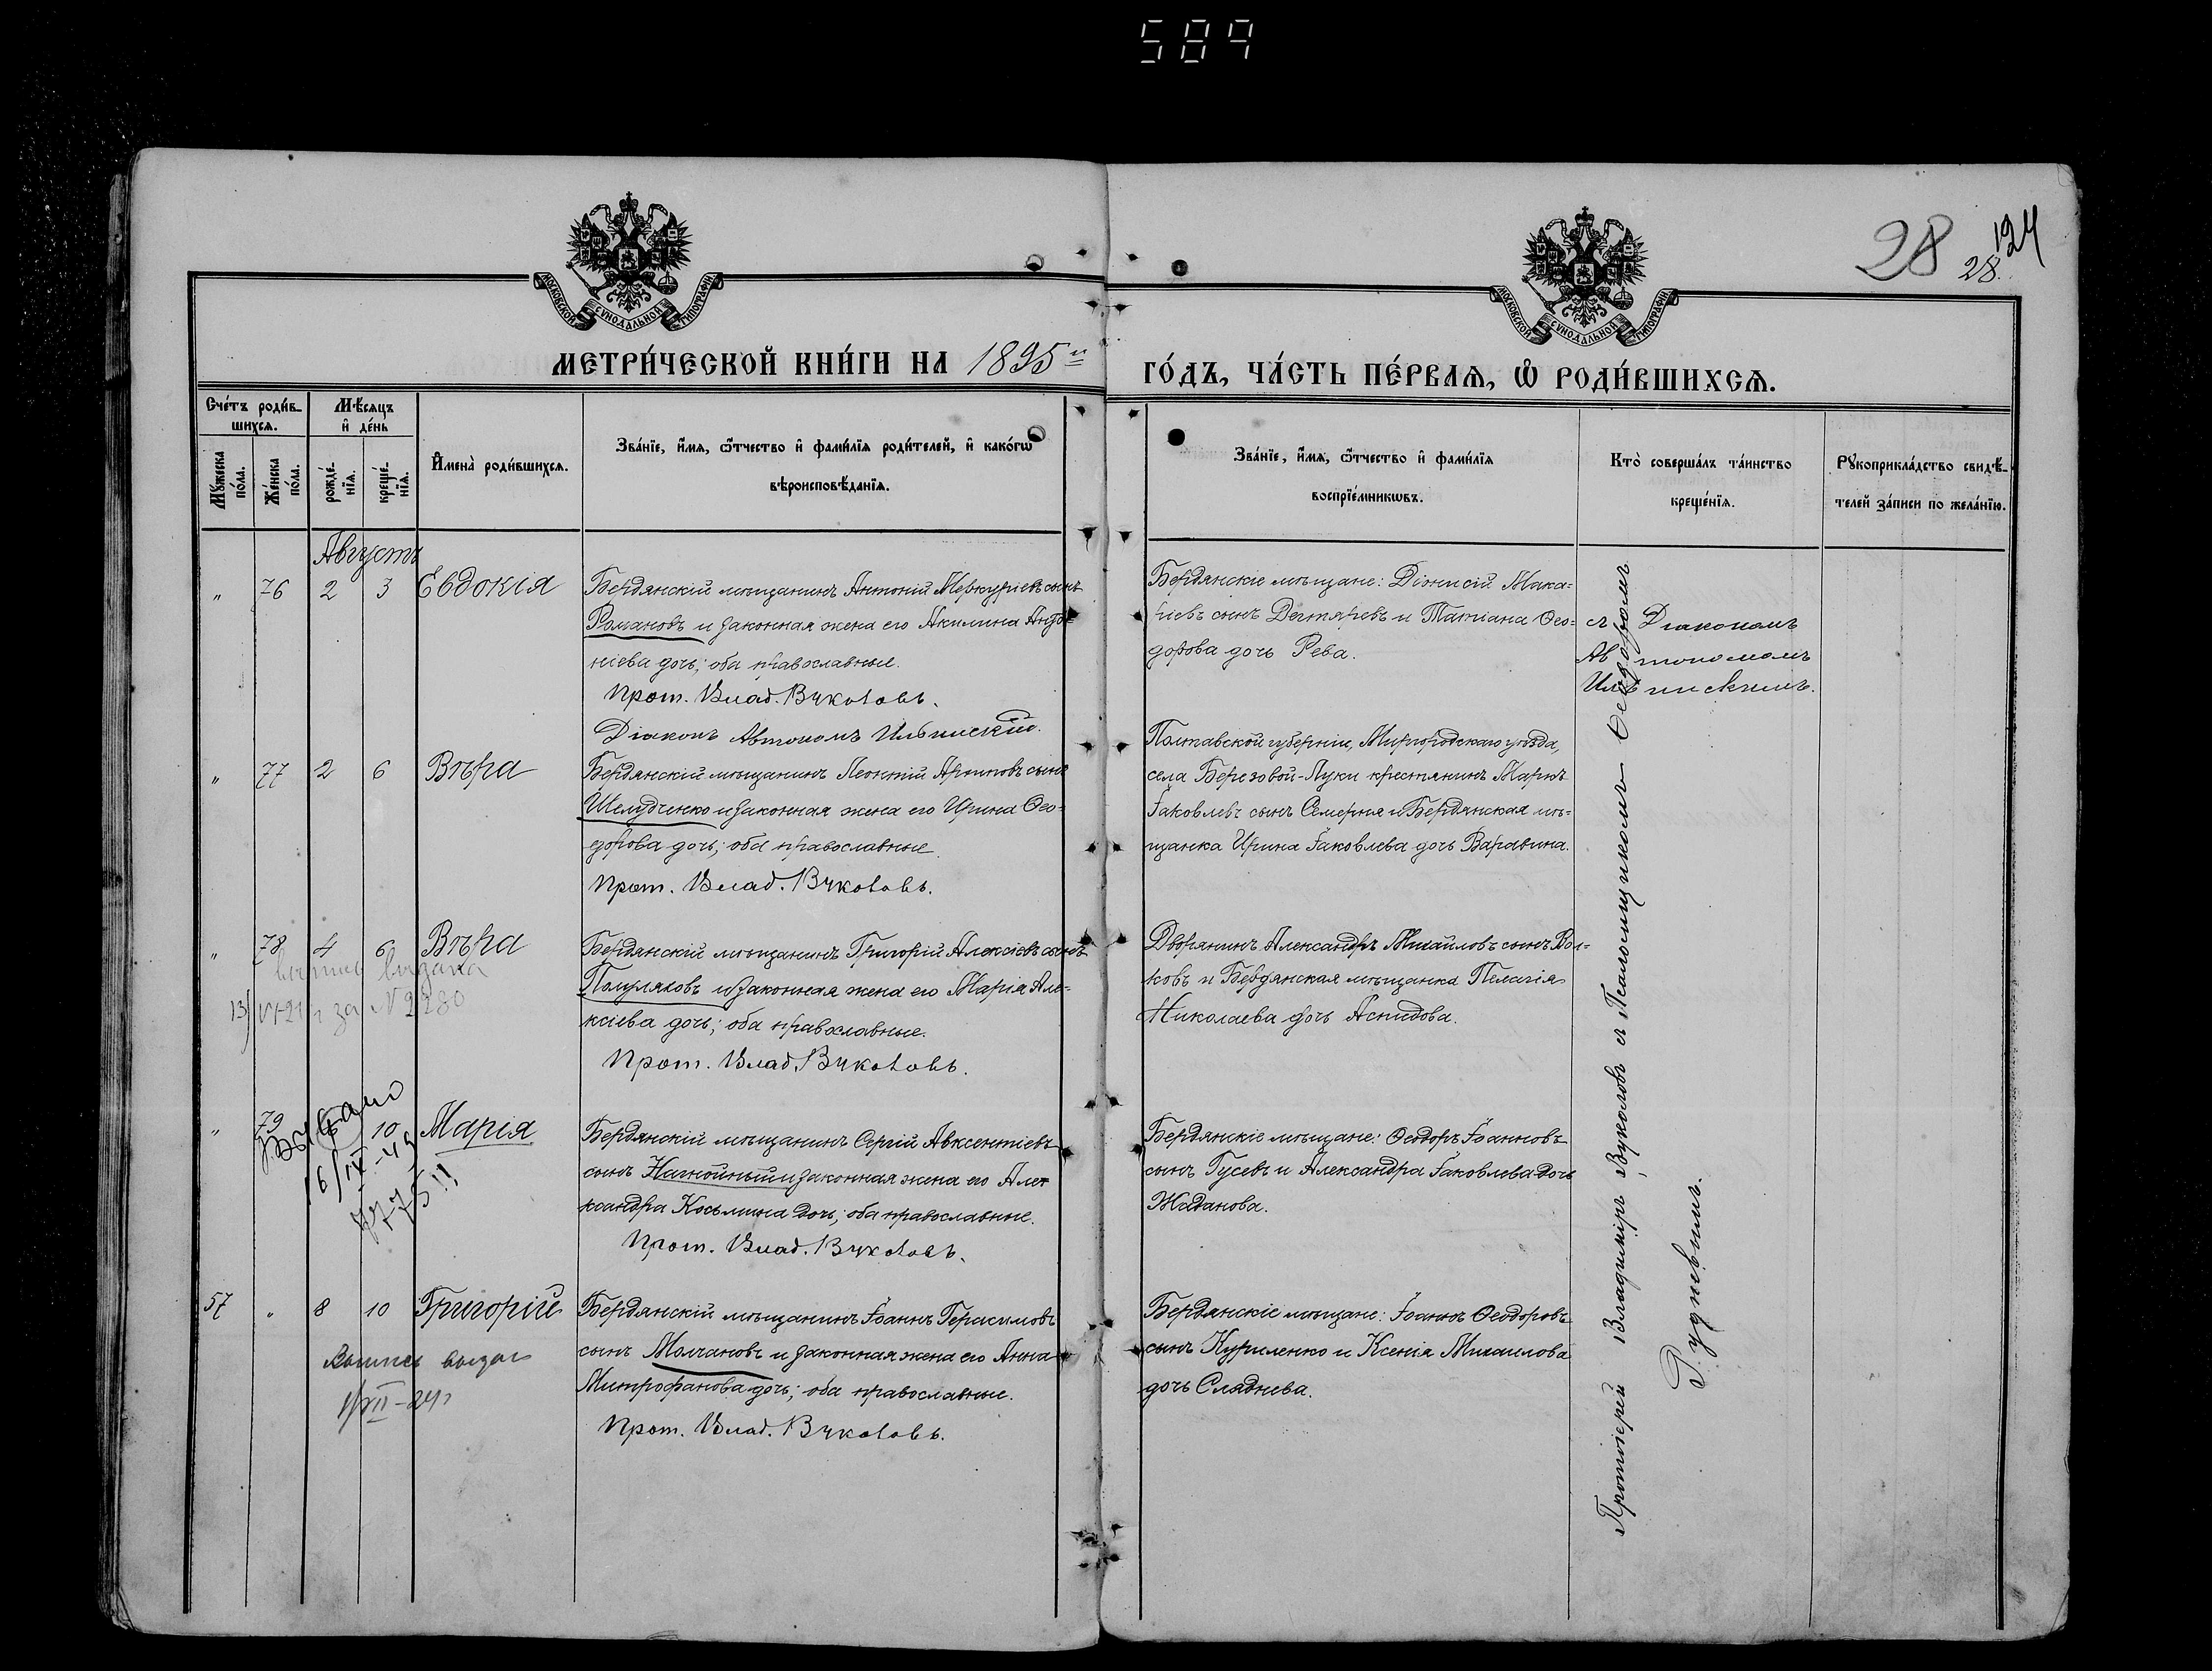 589
28
124
28.
МОСКОВСКОЙ СѴНОДАЛЬНОЙ ТИПОГРАФІИ
МОСКОВСКОЙ СѴНОДАЛЬНОЙ ТИПОГРАФІИ
МЕТРИ́ЧЕСКОЙ КНИ́ГИ НА 1895й
ГО́ДЪ, ЧА́СТЬ ПЕ́РВАЯ, Ѡ РОДИ́ВШИХСЯ.
Сче́тъ роди́в-
шихся.
Мꙋжеска по́ла.
Же́нска по́ла.
Мѣ́сяцъ
и҆ де́нь
рожде́-
нїя.
креще́-
нїя.
И҆мена̀ роди́вшихся.
Зва́нїе, и҆́мя, ѻ҆́тчество и҆ фами́лїя роди́телей, и҆ како́гѡ
вѣроисповѣ́данїя.
Зва́нїе, и҆́мя, ѻ҆́тчество и҆ фами́лїя
воспрїе́мникѡвъ.
Кто̀ соверша́лъ та́инство
креще́нїя.
Рꙋкоприкла́дство свидѣ́-
телей за́писи по жела́нїю.
Августъ
" 76 2 3 Евдокія
Бердянскій мѣщанинъ Антоній Меркуріевъ сынъ
Романовъ и законная жена его Акилина Анто-
ніева дочь; оба православные.
Прот. Влад. Вуколовъ.
Діаконъ Автономъ Ильинскій.
Бердянскіе мѣщане: Діонисій Мака-
ріевъ сынъ Дегтяревъ и Татіана Ѳео-
дорова дочь Рева.
съ Діакономъ
Автономомъ
Ильинскимъ.
" 77 2 6 Вѣра
Бердянскій мѣщанинъ Леонтій Архиповъ сынъ
Шелудченко и законная жена его Ирина Ѳео-
дорова дочь; оба православные.
Прот. Влад. Вуколовъ.
Полтавской губерніи, Миргородскаго уѣзда,
села Березовой-Луки крестьянинъ Маркъ
Іаковлевъ сынъ Семерня и Бердянская мѣ-
щанка Ирина Іаковлева дочь Варавина.
" 78 4 6 Вѣра
выпись выдана
за N 2280
Бердянскій мѣщанинъ Григорій Алексіевъ сынъ
Полуляховъ и законная жена его Марія Але-
ксіева дочь; оба православные.
Прот. Влад. Вуколовъ.
Дворянинъ Александръ Михайловъ сынъ Вол-
ковъ и Бердянская мѣщанка Пелагія
Николаева дочь Аспидова.
" 79 10 Марія
16/IX-43
Бердянскій мѣщанинъ Сергій Авксентіевъ
сынъ и законная жена его Алек
ксандра Косьмина дочь; оба православные.
Прот. Влад. Вуколовъ.
Бердянскіе мѣщане: Ѳеодоръ Іоанновъ
сынъ Гусевъ и Александра Іаковлева дочь
Жаданова.
57 " 8 10 Григорій
Выпись выдан
Бердянскій мѣщанинъ Іоаннъ Герасимовъ
сынъ Молчановъ и законная жена его Анна
Митрофанова дочь; оба православные.
Прот. Влад. Вуколовъ.
Бердянскіе мѣщане: Іоаннъ Ѳеодоровъ
сынъ Куриленко и Ксенія Михаилова
дочь Сляднева.
Протоіерей Владиміръ Вуколовъ съ Псаломщикомъ Ѳеодоромъ
Рудневымъ.